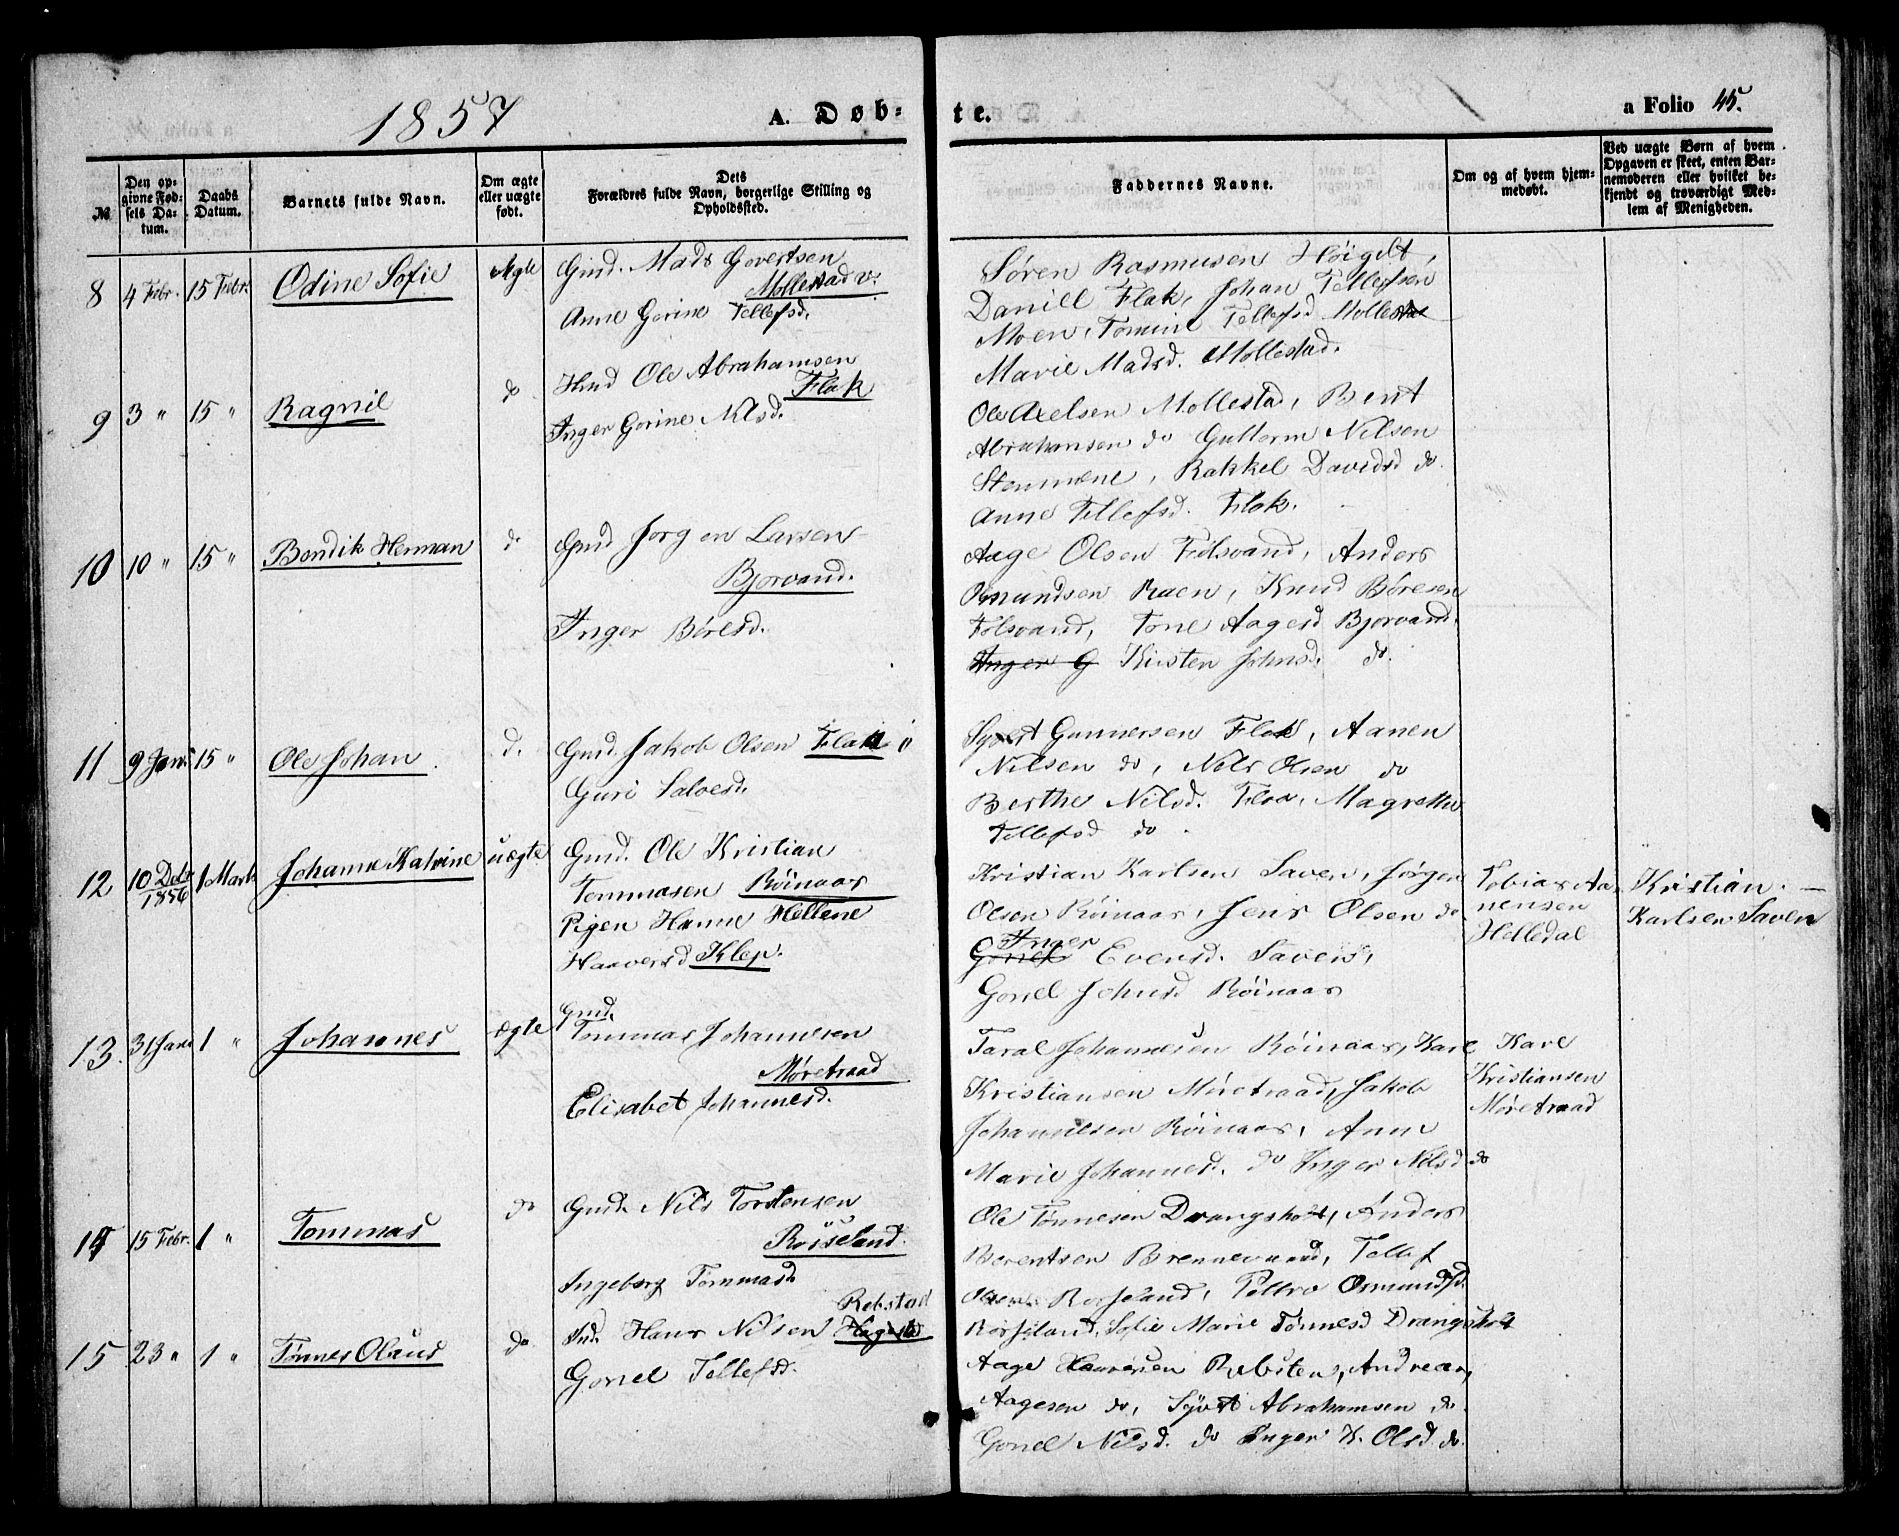 1857
A. Døb-
te.
a Folio 45.
№
Den op-
givne Fød-
sels Da-
tum.
Daabs
Datum.
Barnets fulde Navn.
Om ægte
eller uægte
født.
Dets
Forældres fulde Navn, borgerlige Stilling og
Opholdssted.
Faddernes Navne.
Om og af hvem hjem-
medøbt.
Ved uægte Børn af hvem
Opgaven er skeet, enten Bar-
nemoderen eller hvilket be-
kjendt og troværdigt Med-
lem af Menigheden.
8 4 Febr. 15 Febr. Odine Sofie Ægte
Gmd. Mads Govertsen
Mollestad v:
Anne Gorine Tellefsd.
Søren Rasmusen Høigelt,
Daniel Flak, Johan Tellefsen
Moen, Tomine Tellefsd Mollestad
Marie Madsd. Mollestad.
9 3 " 15 " Ragnil do
Hmd Ole Abrahamsen
Flak
Inger Gorine Nilsd.
Ole Axelsen Mollestad, Bent
Abrahamsen do Guttorm Nilsen
Stemmene, Rakkel Davidsd do.
Anne Tellefsd. Flak.
10 10 " 15 " Bendik Herman do
Gmd Jørgen Larsen
Bjorvand.
Inger Børesd.
Aage Olsen Følsvand, Anders
Osmundsen Raen, Knud Børesen
Følsvand, Tone Aagesd Bjorvand.
Inger G Kirsten Johnsd. do.
11 9 Jan. 15 " Ole Johan d.
Gmd. Jakob Olsen Flak
Guri Salvesd.
Syvert Gunnersen Flak, Aanen
Nilsen do, Nils Olsen do
Berthe Nilsd. Flaa, Magrethe
Tellefsd do.
12 10 Dcbr 1856 1 Marts Johanne Katrine uægte
Gmd. Ole Kristian
Tommasen Röinaas
Pigen Hanne Hellene
Haaversd Klep.
Kristian Karlsen Saven, Jørgen
Olsen Röinaas, Jens Olsen do
Inger
Gonel Evensd. Saven,
Gonel Johnsd Röinaas
Tobias Aa-
nensen
Helledal
Kristian
Karlsen Saven
13. 31 Jan. 1 " Johannes ægte
Gmd.
Tommas Johannesen
Møretraad
Elisabet Johannesd.
Taral Johannesen Röinaas, Karl
Kristiansen Møretraad, Jakob
Johannesen Röinaas, Anne
Marie Johannesd. do Inger Nilsd do
Karl
Kristiansen
Møretraad
14 15 Febr. 1 " Tommas do
Gmd. Nils Torstensen
Rosseland.
Ingeborg Tommasd.
Ole Tønnesen Drangsholt, Anders
Berentsen Brennevand, Tellef
Olsen Rosseland, Pettro Osmundsd.
Rosseland, Sofie Marie Tønnesd Drangsholt
15 23 " 1 " Tønnes Olaus do
Rebstad
Ind. Hans Nilsen
Gonel Tellefsd.
Aage Haaversen Rebsten, Andreas
Aagesen do, Syvert Abrahamsen do.
Gonel Nilsd. do Inger K. Olsd do.